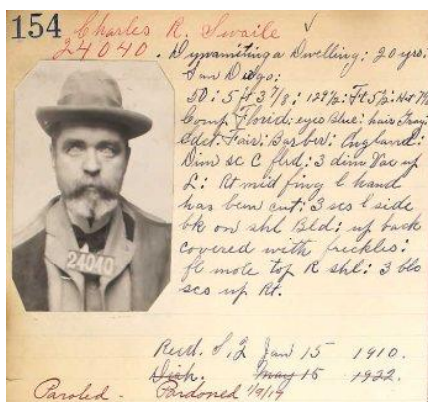 154 Charles R. Swaile
24040. Dynamiting a Dwelling: 20 yrs:
San Diego:
50: 5 ft 3 7/8: 129½: Ft 5½: Hat 7⅛
Comp Florid: eyes Blue: hair Gray:
Edct: Fair: Barber: England:
Dim sc C frhd: 3 dim Vac up
L: Rt mid fing L hand
has been cut: 3 scs L side
bk on shl Bld: up back
covered with freckles:
fl mole top R shl: 3 blo
scs up Rt.
24040
Recd. S, 2 Jan 15 1910.
Disch. May 15 1922.
Paroled - Pardoned 1/9/19